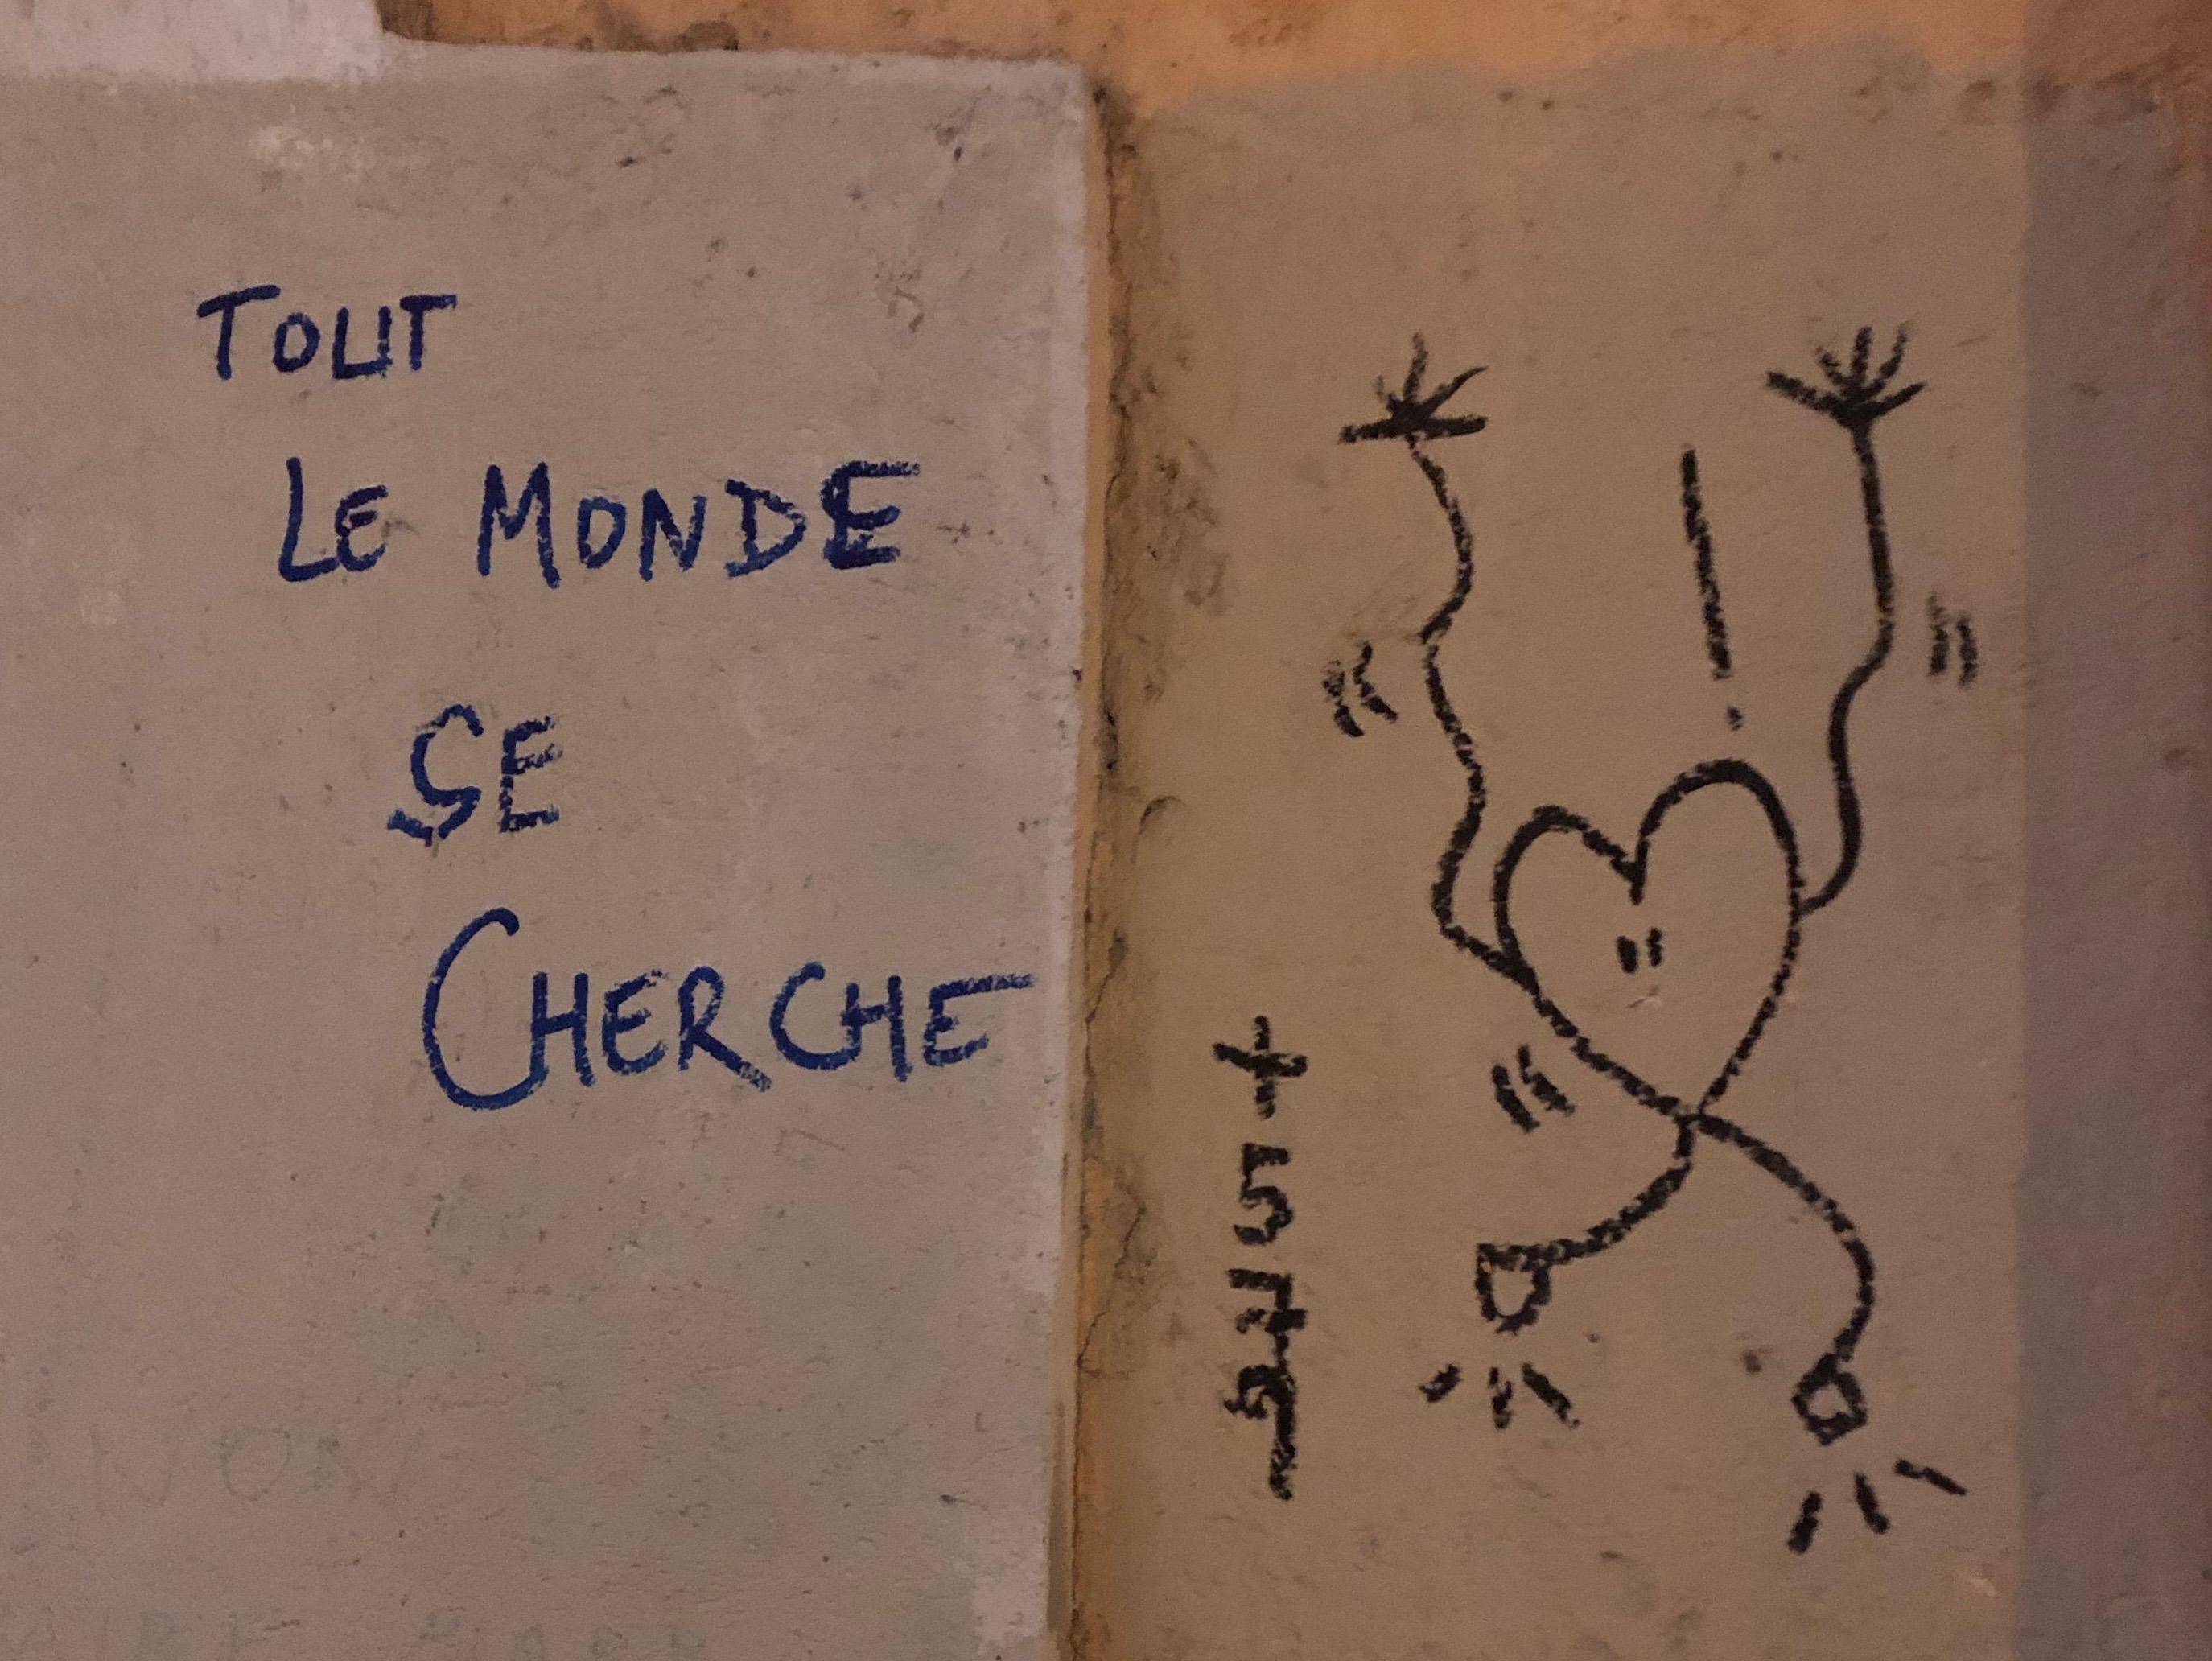 TOUT
LE MONDE
SE
CHERCHE